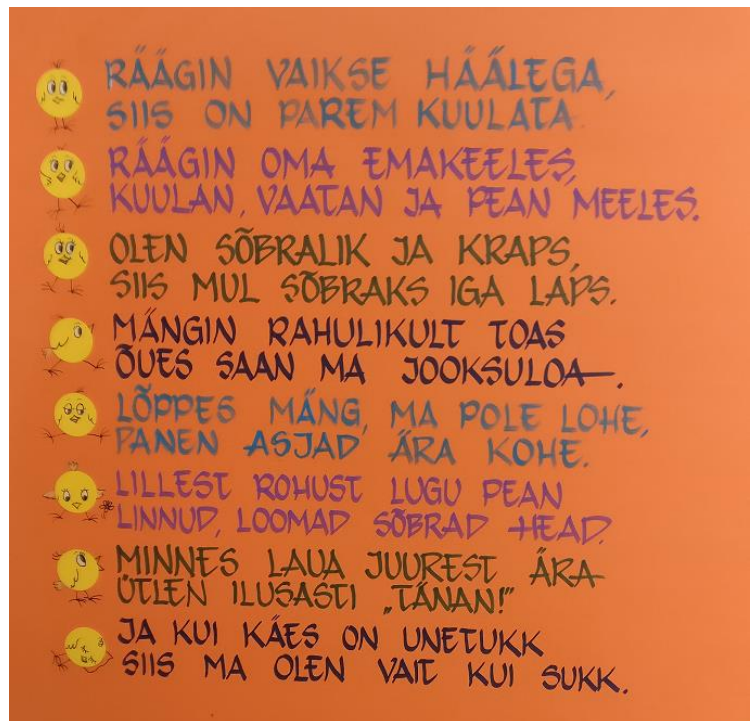 RÄÄGIN VAIKSE HÄÄLEGA,
SIIS ON PAREM KUULATA.
RÄÄGIN OMA EMAKEELES,
KUULAN, VAATAN JA PEAN MEELES.
OLEN SÕBRALIK JA KRAPS,
SIIS MUL SÕBRAKS IGA LAPS.
MÄNGIN RAHULIKULT TOAS
ÕUES SAAN MA JOOKSULOA.
LÕPPES MÄNG, MA POLE LOHE,
PANEN ASJAD ÄRA KOHE.
LILLEST ROHUST LUGU PEAN
LINNUD, LOOMAD SÕBRAD HEAD.
MINNES LAUA JUUREST ÄRA
ÜTLEN ILUSASTI „TÄNAN!"
JA KUI KÄES ON UNETUKK
SIIS MA OLEN VAIT KUI SUKK.